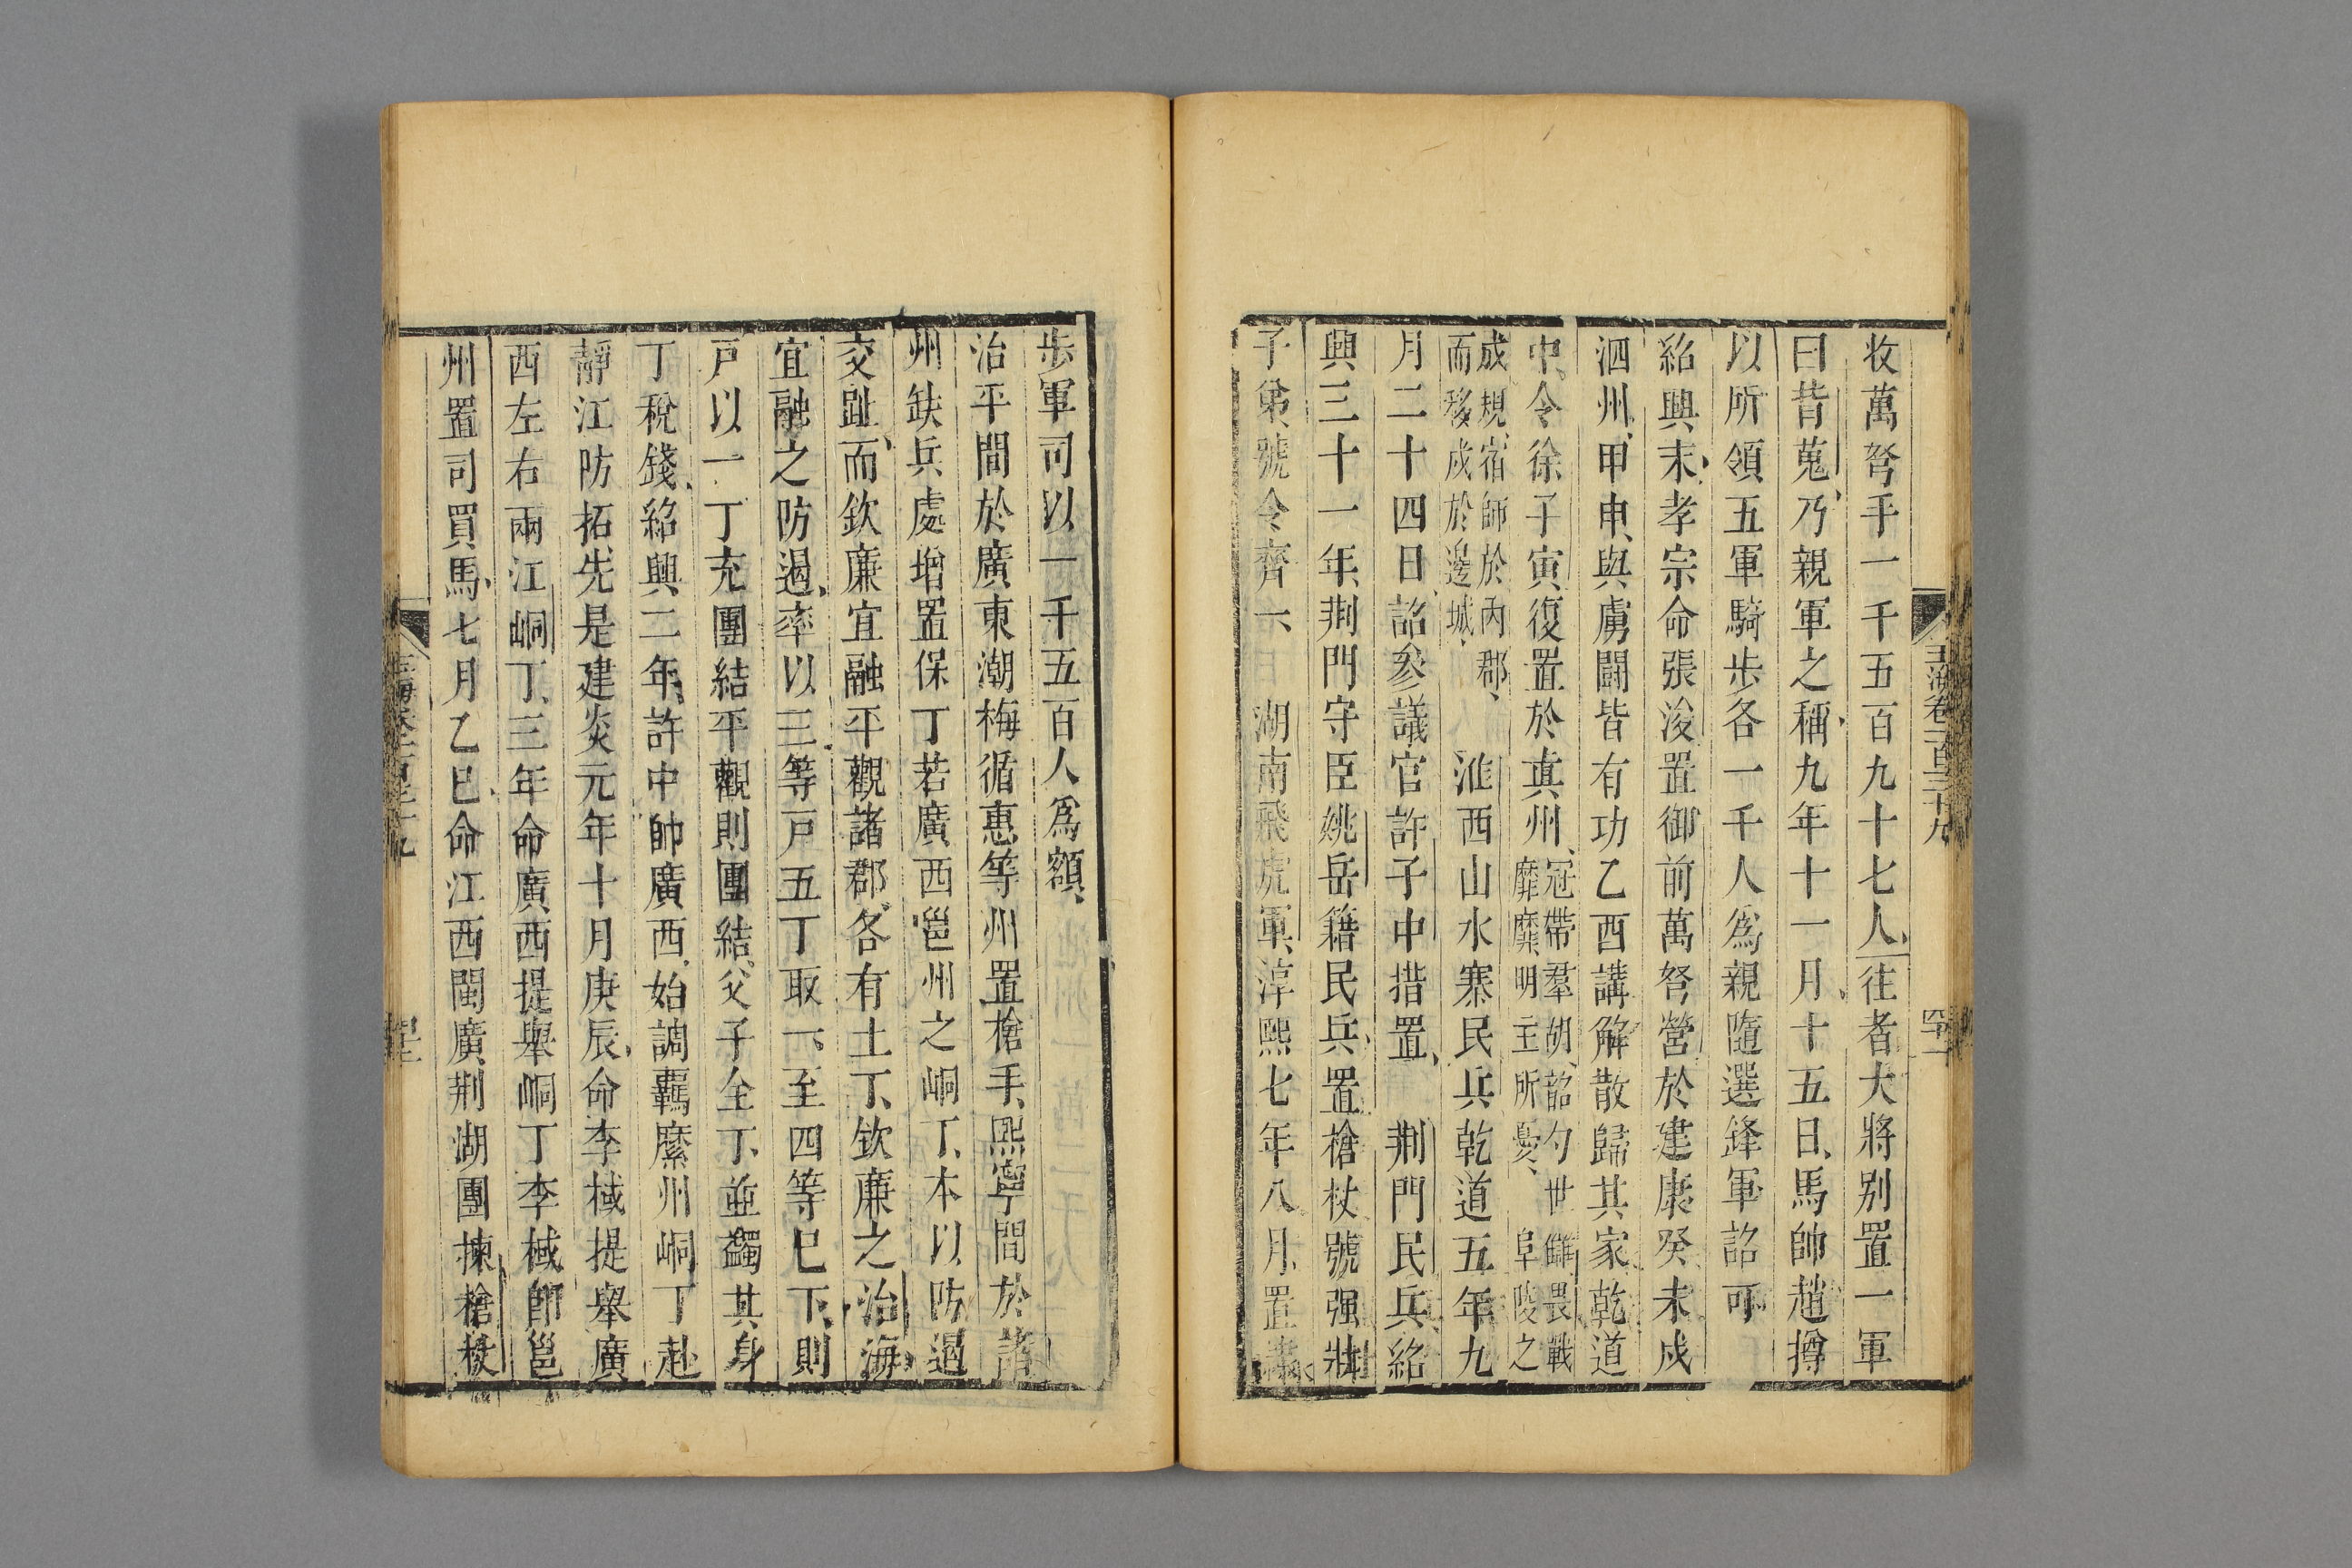 收萬弩手一千五百九十七人往者大將别置一軍
曰背嵬乃親軍之稱九年十一月十五日馬帥趙撙
以所領五軍騎步各一千人爲親隨選鋒軍詔可
紹興末孝宗命張浚置御前萬弩營於建康癸未戍
泗州甲申與虜鬪皆有功乙酉講解散歸其家乾道
中令徐子寅復置於真州冠帶羣胡韶勺世讎畏戰
靡靡明主所憂阜陵之
成規宿師於內郡
而移戍於邊城
淮西山水寨民兵乾道五年九
月二十四日詔參議官許子中措置 荆門民兵紹
興三十一年荆門守臣姚岳籍民兵置槍杖號强壯
子弟號令齊一 湖南飛虎軍淳熙七年八月置
步軍司以一千五百人爲額
治平間於廣東潮梅循惠等州置槍手熙寧間於諸
州缺兵處增置保丁若廣西邕州之峒丁本以防遏
交趾而欽廉宜融平觀諸郡各有土丁欽廉之治海
宜融之防遏率以三等戶五丁取一至四等已下則
戶以一丁充團結平觀則團結父子全丁並蠲其身
丁稅錢紹興二年許中帥廣西始調羈縻州峒丁赴
靜江防拓先是建炎元年十月庚辰命李棫提舉廣
西左右兩江峒丁三年命廣西提舉峒丁李棫即邕
州置司買馬七月乙巳命江西閩廣荆湖團揀槍杖
玉海卷一百三十九
四十一